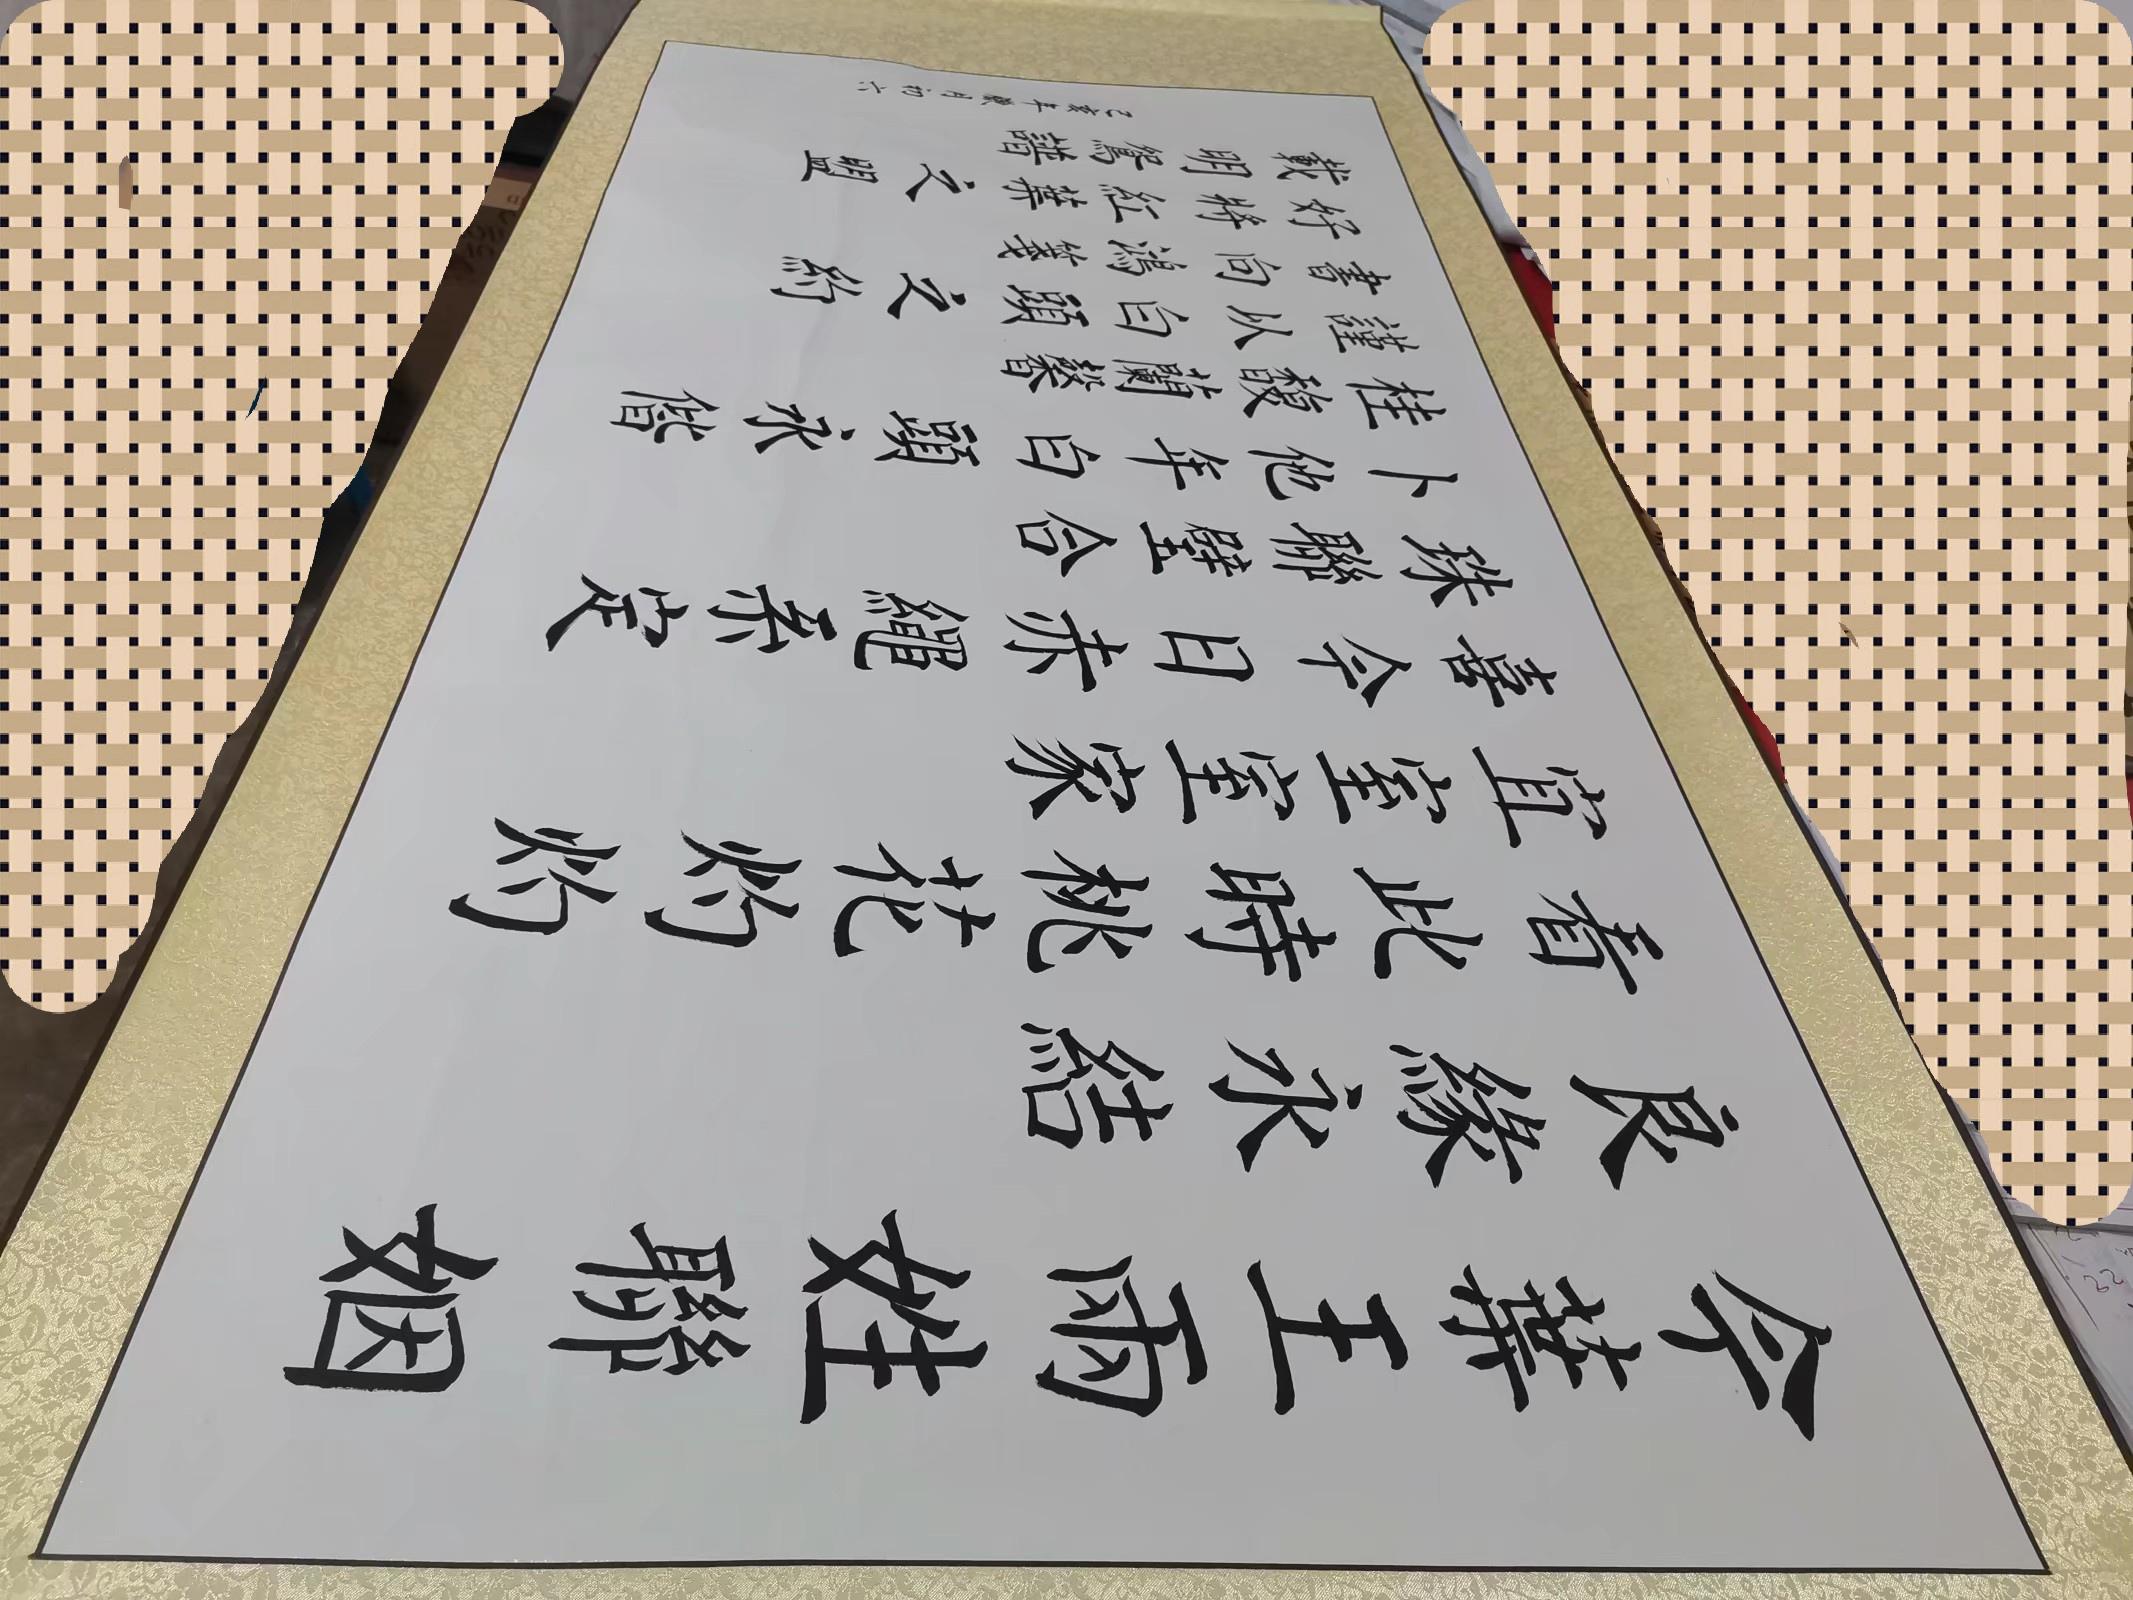 今葉王兩姓聯姻
良緣永結
看此時桃花灼灼
宜室室家
喜今日赤繩系定
珠聯璧合
卜他年白頭永偕
桂馥蘭馨
謹以白頭之約
書向鴻箋
好將紅葉之盟
載明鴛譜
己亥年臘月初六